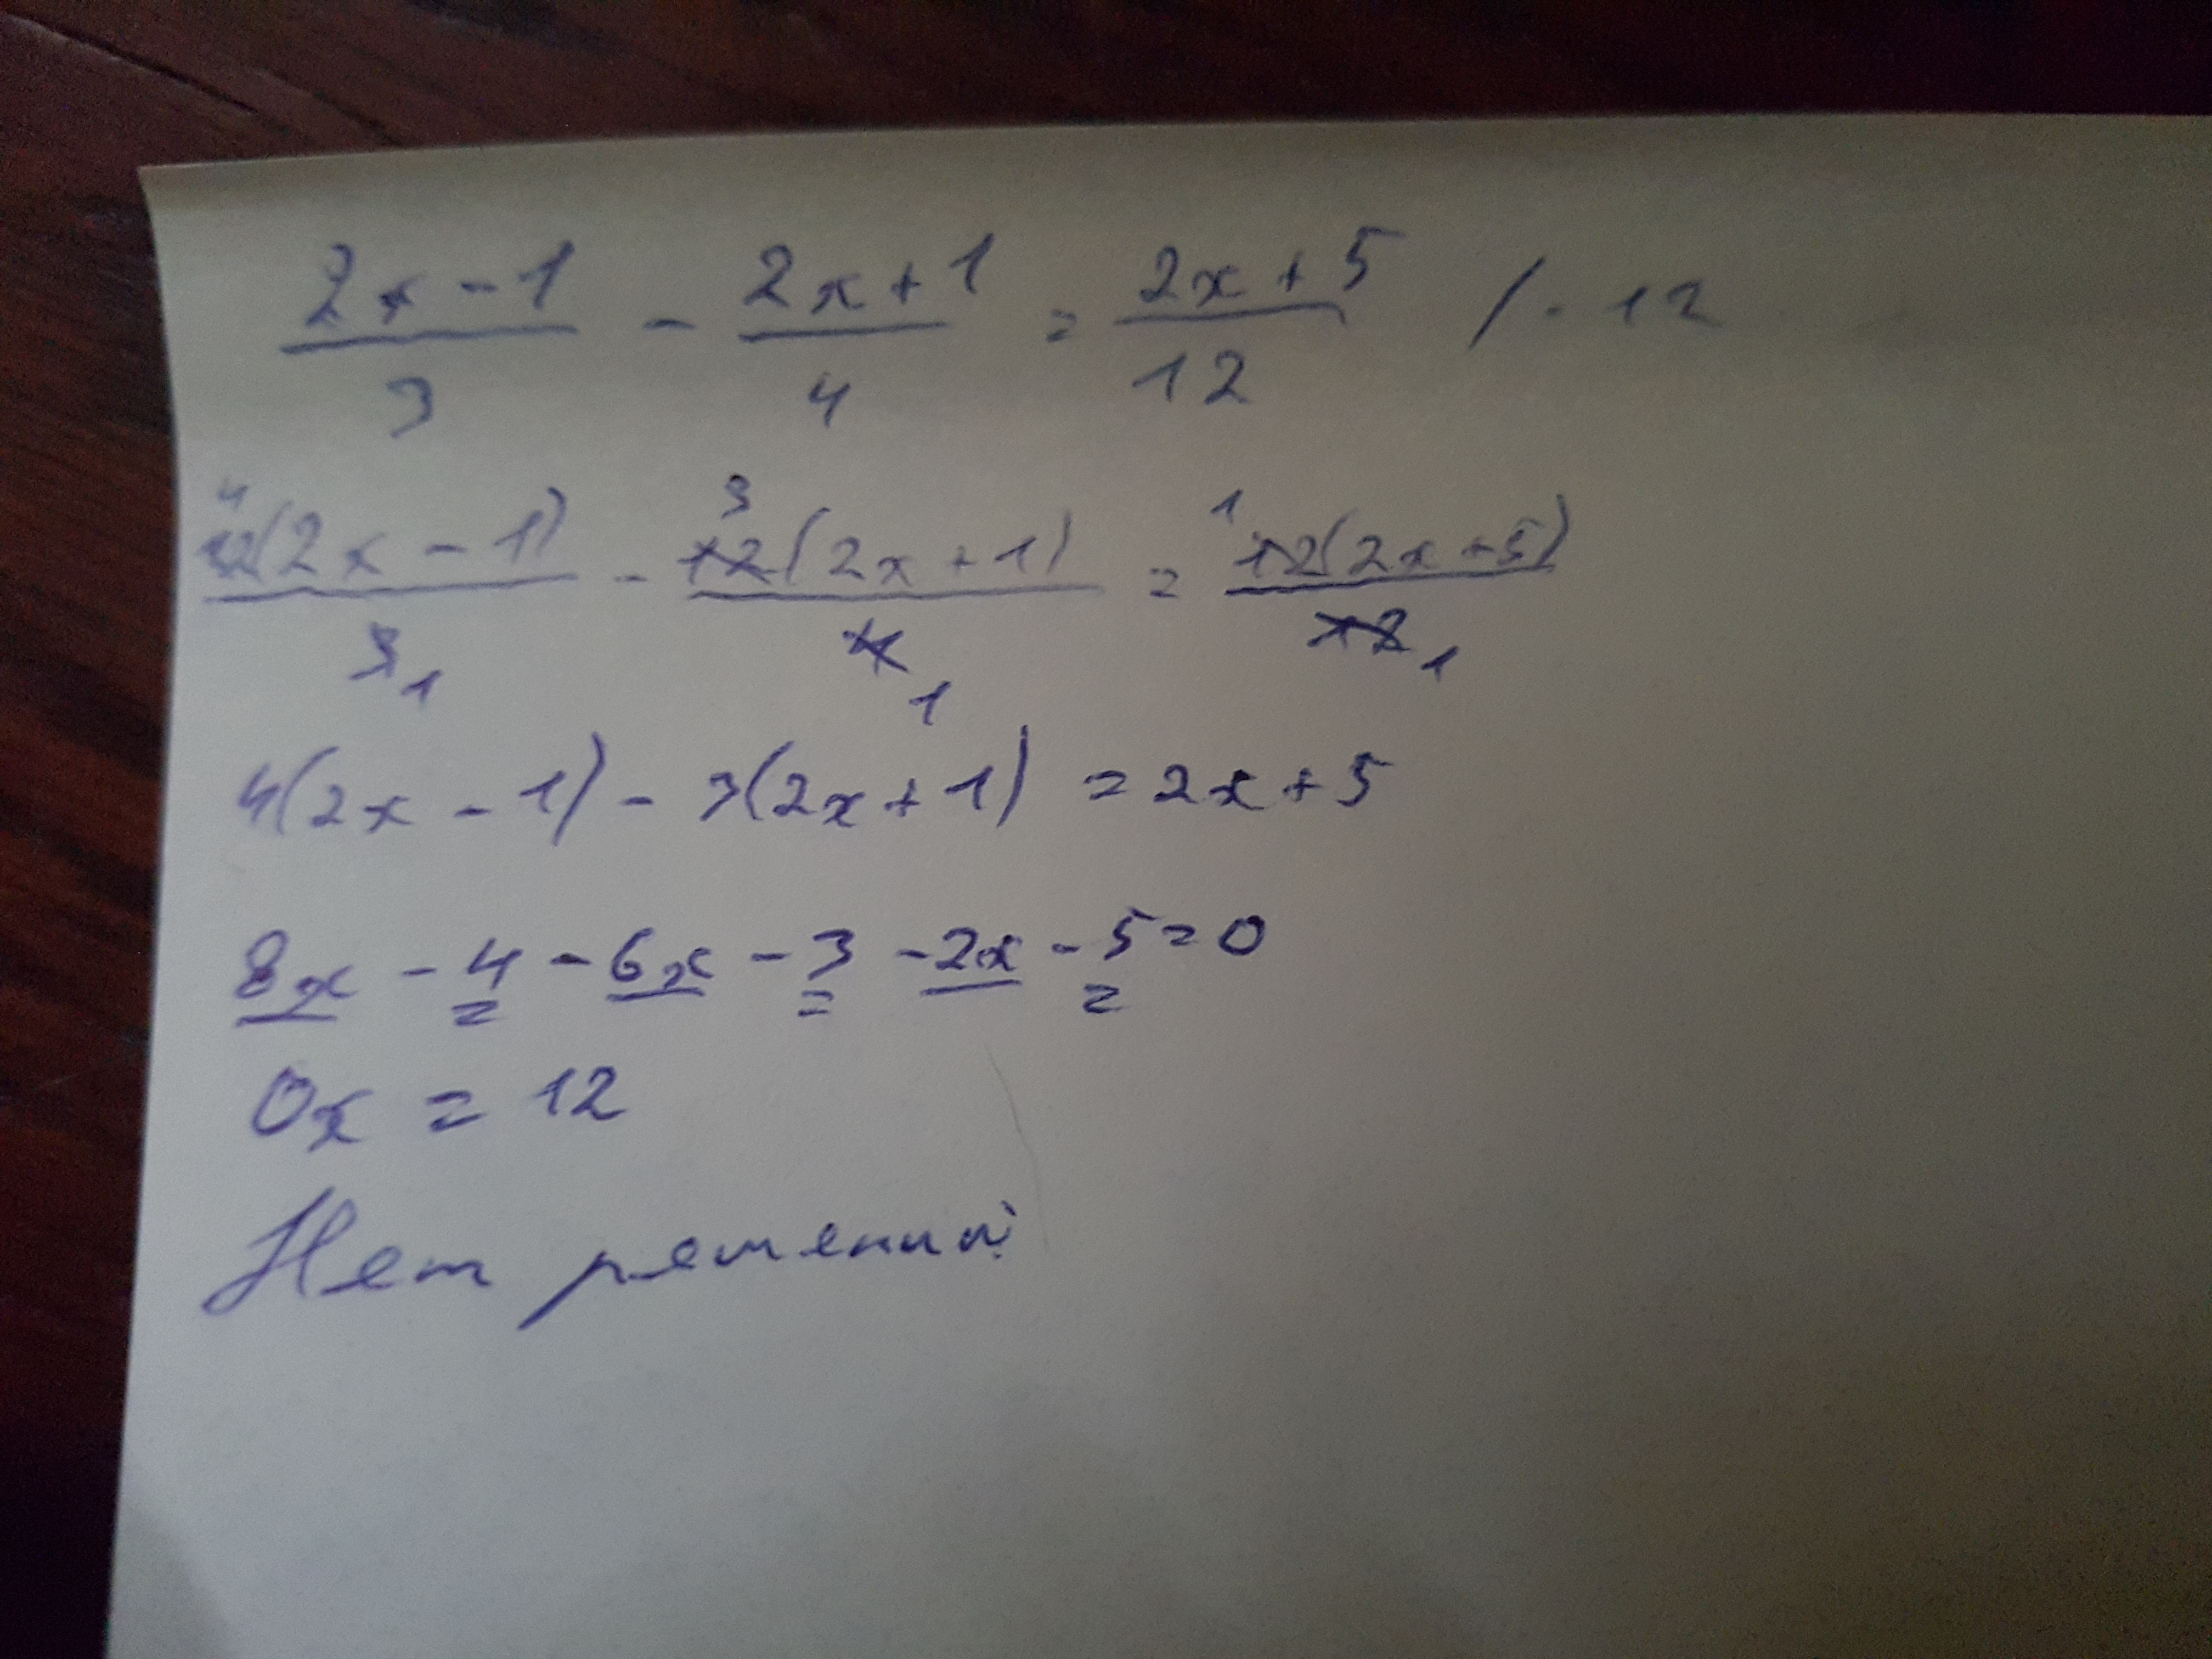 (2x - 1)/3 - (2x + 1)/4 = (2x + 5)/12 / · 12
4 12(2x - 1)/3 1 - 3 12(2x + 1)/4 1 = 1 12(2x + 5)/12 1
4(2x - 1) - 3(2x + 1) = 2x + 5
8x - 4 - 6x - 3 - 2x - 5 = 0
0x = 12
Нет решений